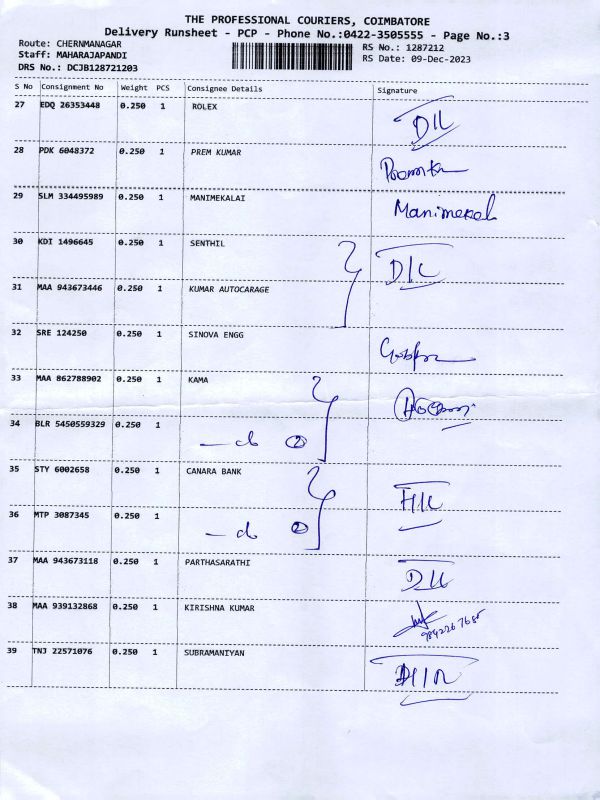 THE PROFESSIONAL COURIERS, COIMBATORE
Delivery Runsheet - PCP - Phone No.:0422-3505555 - Page No.:3
Route: CHERNMANAGAR
Staff: MAHARAJAPANDI
DRS No.: DCJB128721203
RS No.: 1287212
RS Date: 09-Dec-2023
S No Consignment No Weight PCS Consignee Details Signature
27 EDQ 26353448 0.250 1 ROLEX
28 PDK 6048372 0.250 1 PREM KUMAR
29 SLM 334495989 0.250 1 MANIMEKALAI Manimekal
30 KDI 1496645 0.250 1 SENTHIL
31 MAA 943673446 0.250 1 KUMAR AUTOCARAGE
32 SRE 124250 0.250 1 SINOVA ENGG
33 MAA 862788902 0.250 1 KAMA
34 BLR 5450559329 0.250 1 — do ②
35 STY 6002658 0.250 1 CANARA BANK
36 MTP 3087345 0.250 1 — do ②
37 MAA 943673118 0.250 1 PARTHASARATHI
38 MAA 939132868 0.250 1 KIRISHNA KUMAR
39 TNJ 22571076 0.250 1 SUBRAMANIYAN